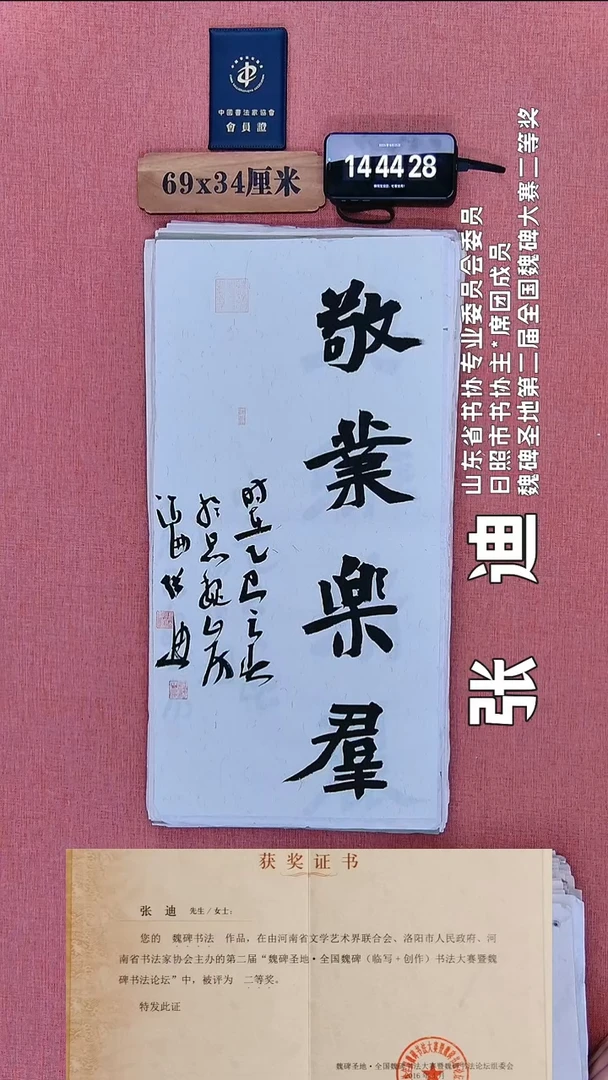 中國書法家協會
會員證
69x34厘米
14 44 28
敬業樂羣
时在乙巳之春
山东省书协专业委员会委员
日照市书协主*席团成员
魏碑圣地第二届全国魏碑大赛二等奖
张迪
获奖证书
张 迪 先生/女士:
您的 魏碑书法 作品，在由河南省文学艺术界联合会、洛阳市人民政府、河
南省书法家协会主办的第二届“魏碑圣地·全国魏碑（临写+创作）书法大赛暨魏
碑书法论坛”中，被评为 二等奖。
特发此证
魏碑圣地·全国魏碑书法大赛暨魏碑书法论坛组委会